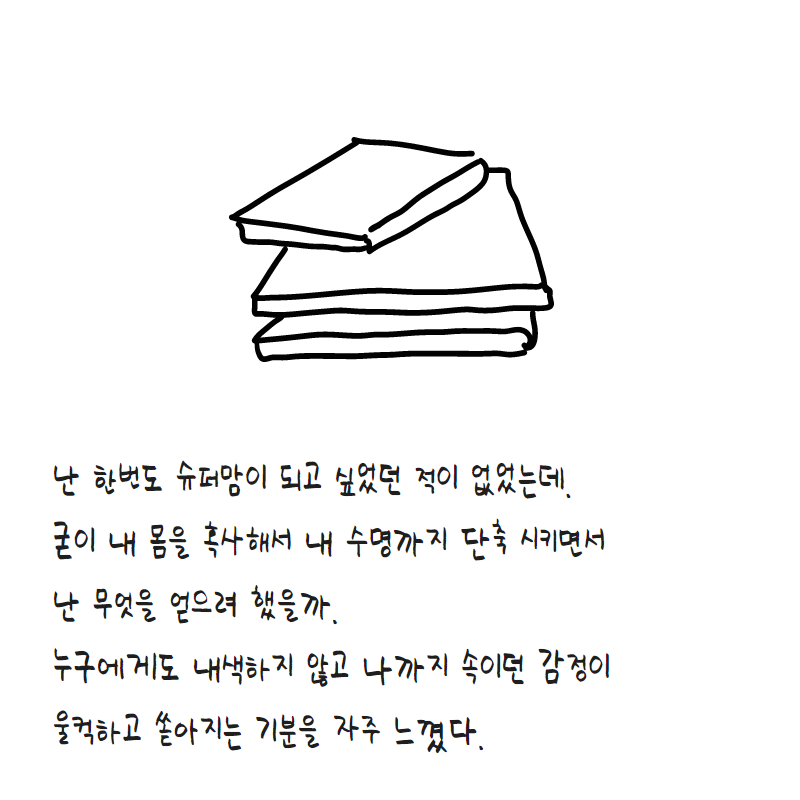 난 한번도 슈퍼맘이 되고 싶었던 적이 없었는데.
굳이 내 몸을 혹사해서 내 수명까지 단축 시키면서
난 무엇을 얻으려 했을까.
누구에게도 내색하지 않고 나까지 속이던 감정이
울컥하고 쏟아지는 기분을 자주 느꼈다.